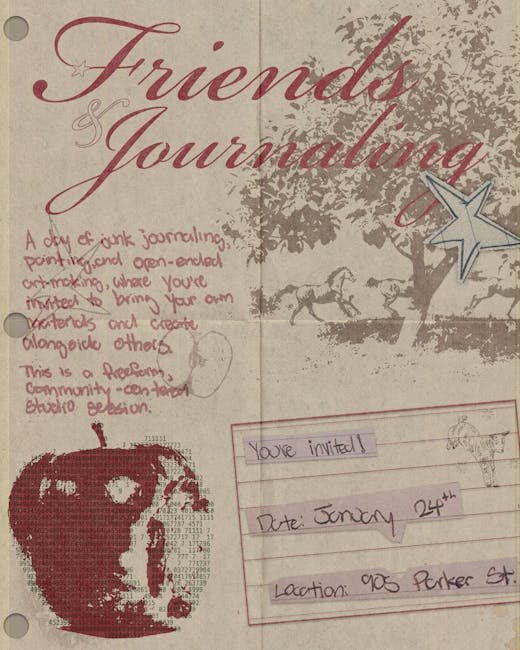 Friends
& Journaling
A day of junk journaling,
painting, and open-ended
art-making, where you're
invited to bring your own
materials and create
alongside others.
This is a freeform,
Community-centered
studio session.
You're invited!
Date: January 24th
Location: 905 Parker St.